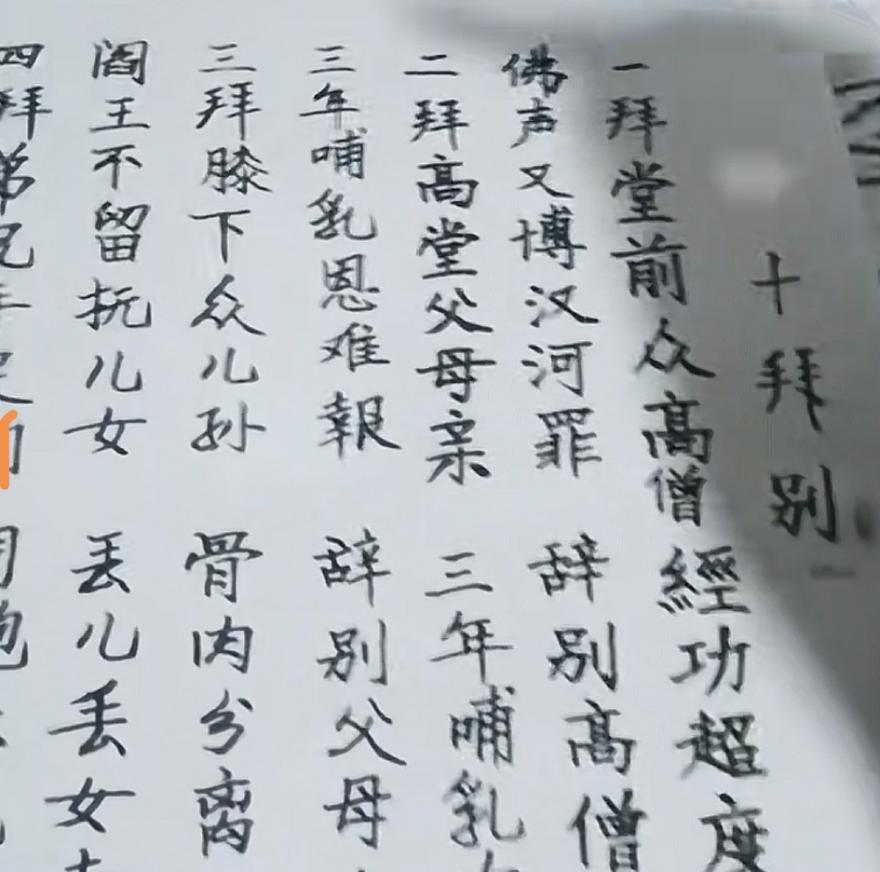 十拜别
一拜堂前众高僧 經功超度
佛声又博汉河罪 辞别高僧
二拜高堂父母亲 三年哺乳
三年哺乳恩难報 辞别父母
三拜膝下众儿孙 骨肉分离
阎王不留抚儿女 丢儿丢女
四拜弟兄